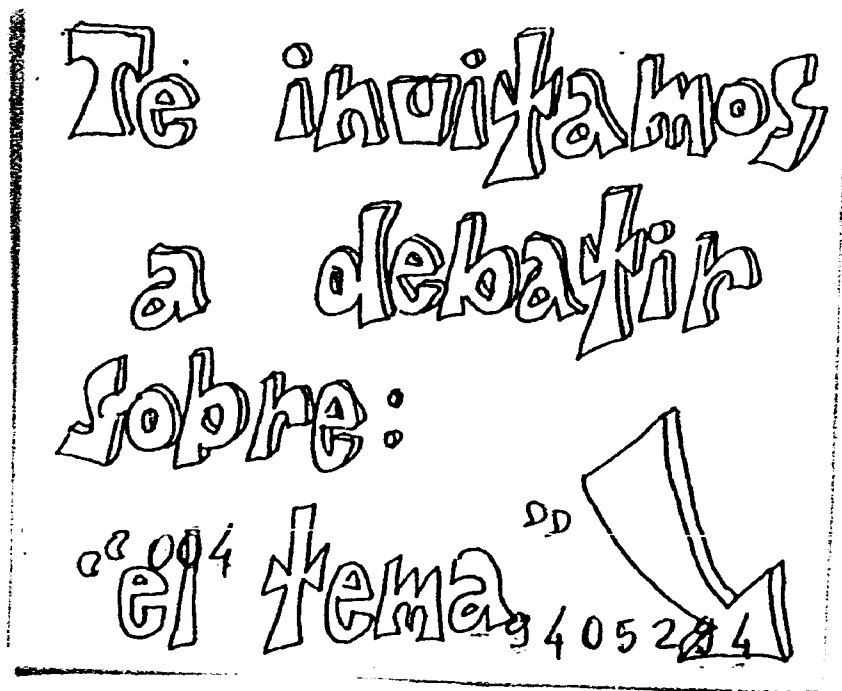 Te invitamos
a debatir
sobre:
004
"el tema"
9405294